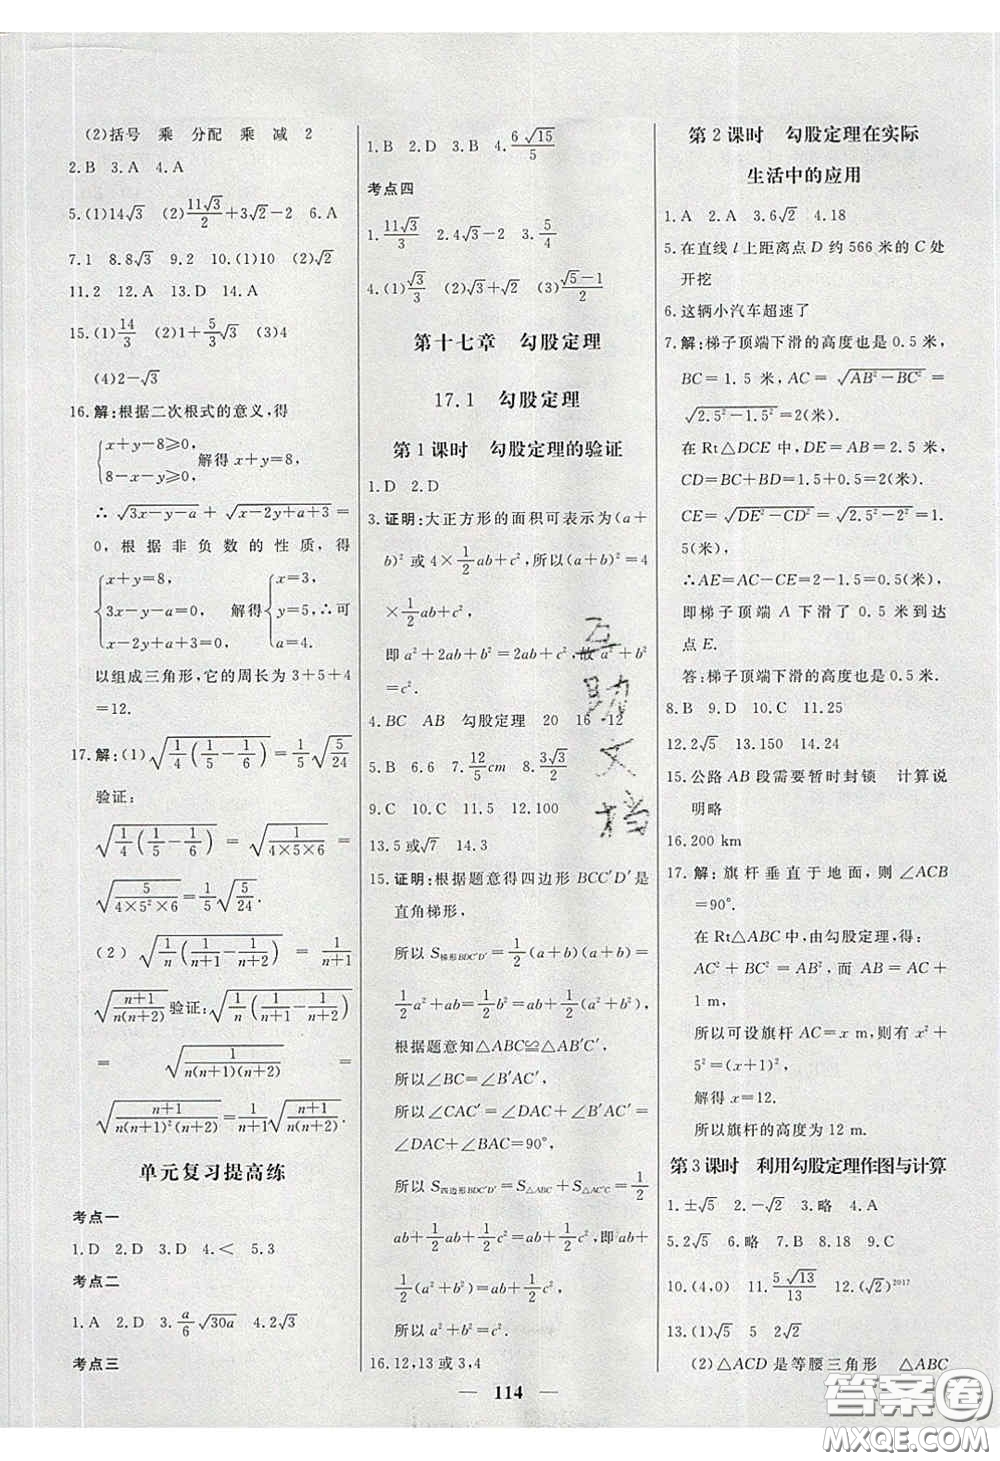 (2)括号 乘 分配 乘 减 2
2.B 3.A 4.A
5.(1)14√3 (2)11√3/2+3√2-2 6.A
7.1 8.8√3 9.2 10.(1)10 (2)√2
11.2 12.A 13.D 14.A
15.(1)14/3 (2)1+5/3√3 (3)4
(4)2-√3
16.解:根据二次根式的意义,得
{x+y-8≥0, 8-x-y≥0, 解得 x+y=8,
∴ √(3x-y-a)+√(x-2y+a+3)=
0,根据非负数的性质,得
{x+y=8, 3x-y-a=0, x-2y+a+3=0, 解得{x=3, y=5, a=4. ∴可
以组成三角形,它的周长为 3+5+4
=12.
17.解:(1)√(1/4(1/5-1/6))=1/5√(5/24)
验证:
√(1/4(1/5-1/6))=√(1/(4×5×6))=
√(5/(4×5²×6))=1/5√(5/24).
(2) √(1/n(1/(n+1)-1/(n+2)))=1/(n+1)
√((n+1)/(n(n+2))) 验证:√(1/n(1/(n+1)-1/(n+2)))
=√(1/(n(n+1)(n+2)))=
√((n+1)/(n(n+1)²(n+2)))=1/(n+1)√((n+1)/(n(n+2))).
单元复习提高练
考点一
1.D 2.D 3.D 4.< 5.3
考点二
1.A 2.D 3.a/6√30a 4.2√3
考点三
1.B 2.D 3.B 4.6√15/5
考点四
1.11√3/3 2.4√3-2 3.5/4
4.(1)√3/3 (2)√3+√2 (3)(√5-1)/2
第十七章 勾股定理
17.1 勾股定理
第1课时 勾股定理的验证
1.D 2.D
3.证明:大正方形的面积可表示为(a+
b)² 或 4×1/2ab+c²,所以(a+b)²=4
×1/2ab+c²,
即 a²+2ab+b²=2ab+c²,故 a²+b²
=c².
4.BC AB 勾股定理 20 16 12
5.B 6.6 7.12/5cm 8.3√3/2
9.C 10.C 11.5 12.100
13.5或√7 14.3
15.证明:根据题意得四边形 BCC′D′是
直角梯形,
所以 S梯形BDC′D′=1/2(a+b)(a+b)=
1/2a²+ab=1/2+ab+1/2b²,
根据题意知△ABC≌△AB′C′,
所以∠BC=∠B′AC′,
所以∠CAC′=∠DAC+∠B′AC′=
∠DAC+∠BAC=90°,
所以 S四边形BDC′D′=S△ABC+S△AC′C=1/2
ab+1/2ab+1/2c²=1/2c²+ab,即ab+
ab+1/2(a²+b²)=1/2c²+ab,
所以 a²+b²=c².
16.12,13 或 3,4
第2课时 勾股定理在实际
生活中的应用
1.A 2.A 3.6√2 4.18
5.在直线 l 上距离点 D 约 566 米的 C 处
开挖
6.这辆小汽车超速了
7.解:梯子顶端下滑的高度也是 0.5 米,
BC=1.5 米,AC=√(AB²-BC²)=
√(2.5²-1.5²)=2(米),
在 Rt△DCE 中,DE=AB=2.5(米),
CD=BC+BD=1.5+0.5=2(米),
CE=√(DE²-CD²)=√(2.5²-2²)=1.
5(米),
∴AE=AC-CE=2-1.5=0.5(米),
即梯子顶端 A 下滑了 0.5 米到达
点 E.
答:梯子顶端下滑的高度也是 0.5 米.
8.B 9.D 10.C 11.25
12.2√5 13.150 14.24
15.公路 AB 段需要暂时封锁 计算说
明略
16.200 km
17.解:旗杆垂直于地面,则∠ACB
=90°.
在 Rt△ABC 中,由勾股定理,得:
AC²+BC²=AB²,而 AB=AC+
1 m,
所以可设旗杆 AC=x m,则有 x²+
5²=(x+1)²,
解得 x=12.
所以旗杆的高度为 12 m.
第3课时 利用勾股定理作图与计算
1.±√5 2.-√2 3.略 4.A
5.2√5 6.略 7.B 8.B 9.C
10.(4,0) 11.5√13/13 12.(√2)²⁰¹⁷
13.(1)√5 5 2√2
(2)△ACD 是等腰三角形 △ABC
互助文档
114
答案圈
MXQE.COM